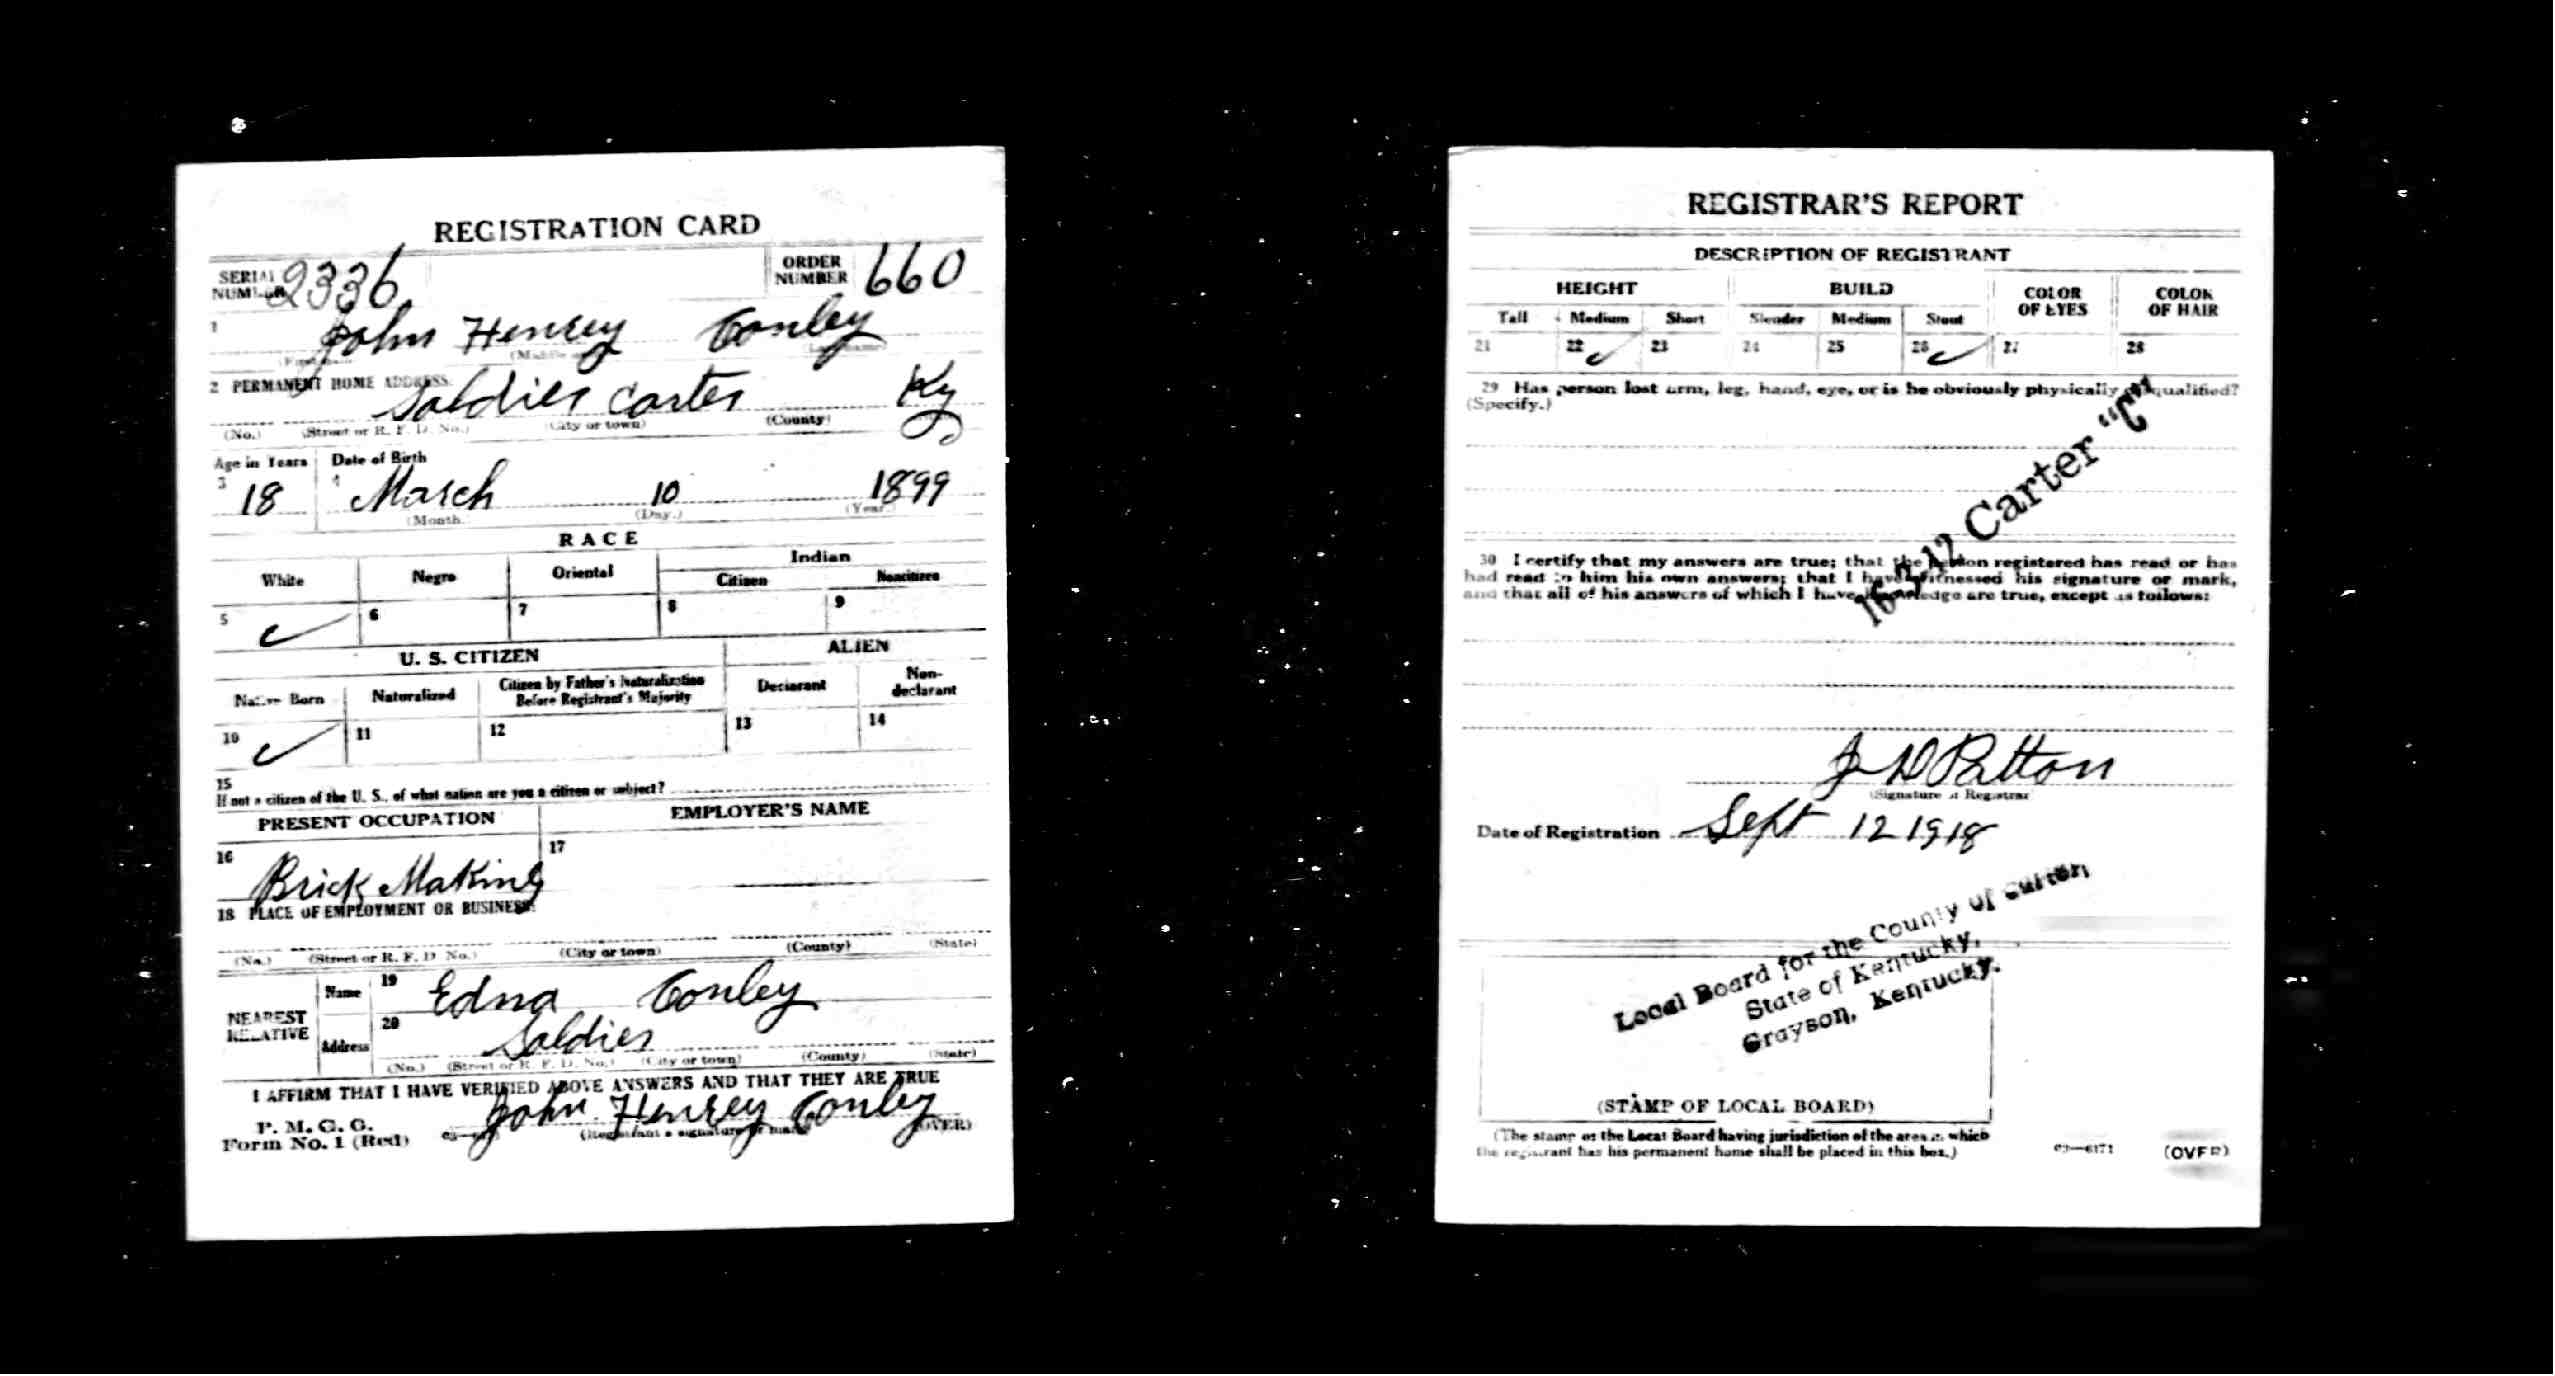 REGISTRATION CARD
SERIAL NUMBER 2336 ORDER NUMBER 660
1 John Henrey Conley
(First name) (Middle name) (Last name)
2 PERMANENT HOME ADDRESS:
Soldier Carter Ky
(No.) (Street or R. F. D. No.) (City or town) (County)
Age in Years Date of Birth
3 18 4 March 10 1899
(Month.) (Day.) (Year.)
RACE
White Negro Oriental Indian
Citizen Noncitizen
5 ✓ 6 7 8 9
U. S. CITIZEN ALIEN
Native Born Naturalized Citizen by Father's Naturalization Before Registrant's Majority Declarant Non-declarant
10 ✓ 11 12 13 14
15
If not a citizen of the U. S., of what nation are you a citizen or subject?
PRESENT OCCUPATION EMPLOYER'S NAME
16 Brick Making 17
18 PLACE OF EMPLOYMENT OR BUSINESS:
(No.) (Street or R. F. D. No.) (City or town) (County) (State)
NEAREST RELATIVE Name 19 Edna Conley
Address 20 Soldier
(No.) (Street or R. F. D. No.) (City or town) (County) (State)
I AFFIRM THAT I HAVE VERIFIED ABOVE ANSWERS AND THAT THEY ARE TRUE
P. M. G. O.
Form No. 1 (Red) John Henrey Conley
(Registrant's signature or mark) (OVER)
REGISTRAR'S REPORT
DESCRIPTION OF REGISTRANT
HEIGHT BUILD COLOR OF EYES COLOR OF HAIR
Tall Medium Short Slender Medium Stout
21 22 ✓ 23 24 25 26 ✓ 27 28
29 Has person lost arm, leg, hand, eye, or is he obviously physically disqualified?
(Specify.)
16-3-12 Carter "C"
30 I certify that my answers are true; that the person registered has read or has
had read to him his own answers; that I have witnessed his signature or mark,
and that all of his answers of which I have knowledge are true, except as follows:
Patton
(Signature of Registrar)
Date of Registration Sept 12 1918
Local Board for the County of Carter,
State of Kentucky,
Grayson, Kentucky.
(STAMP OF LOCAL BOARD)
(The stamp of the Local Board having jurisdiction of the area in which
the registrant has his permanent home shall be placed in this box.)
03—6171 (OVER)